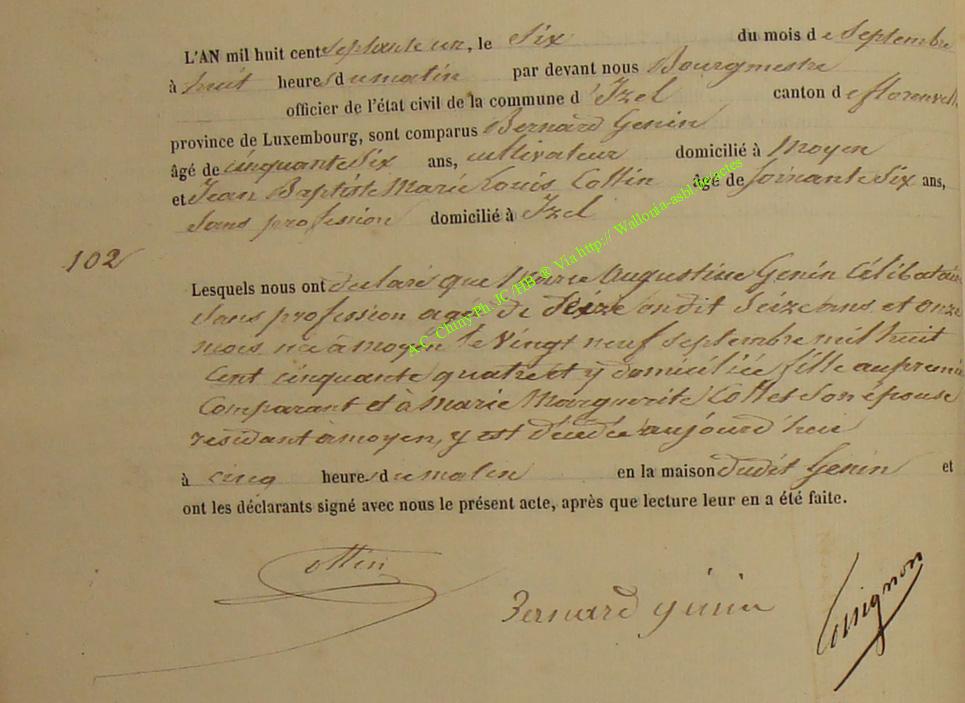 L'AN mil huit cent septante un, le Six du mois de Septembre
à huit heures du matin par devant nous Bourgmestre
officier de l'état civil de la commune d'Izel canton de florenville
province de Luxembourg, sont comparus Bernard Genin
âgé de cinquante six ans, cultivateur domicilié à Moyen
et Jean Baptiste Marie Louis Cottin âgé de soixante six ans,
sans profession domicilié à Izel
102
Lesquels nous ont déclaré que Marie Augustine Genin Célibataire
sans profession agée de seize on dit Seize ans et onze
mois née à moyen le Vingt neuf septembre mil huit
cent cinquante quatre et y domiciliée fille au premier
Comparant et à Marie Marguerite Collet son épouse
residant à moyen, y est décédée aujourd'hui
à cinq heures du matin en la maison dudit Genin et
ont les déclarants signé avec nous le présent acte, après que lecture leur en a été faite.
Cottin
Bernard genin
A-C Chiny-Ph. JC /HB-® Via http:// Wallonia-asbl.be/actes